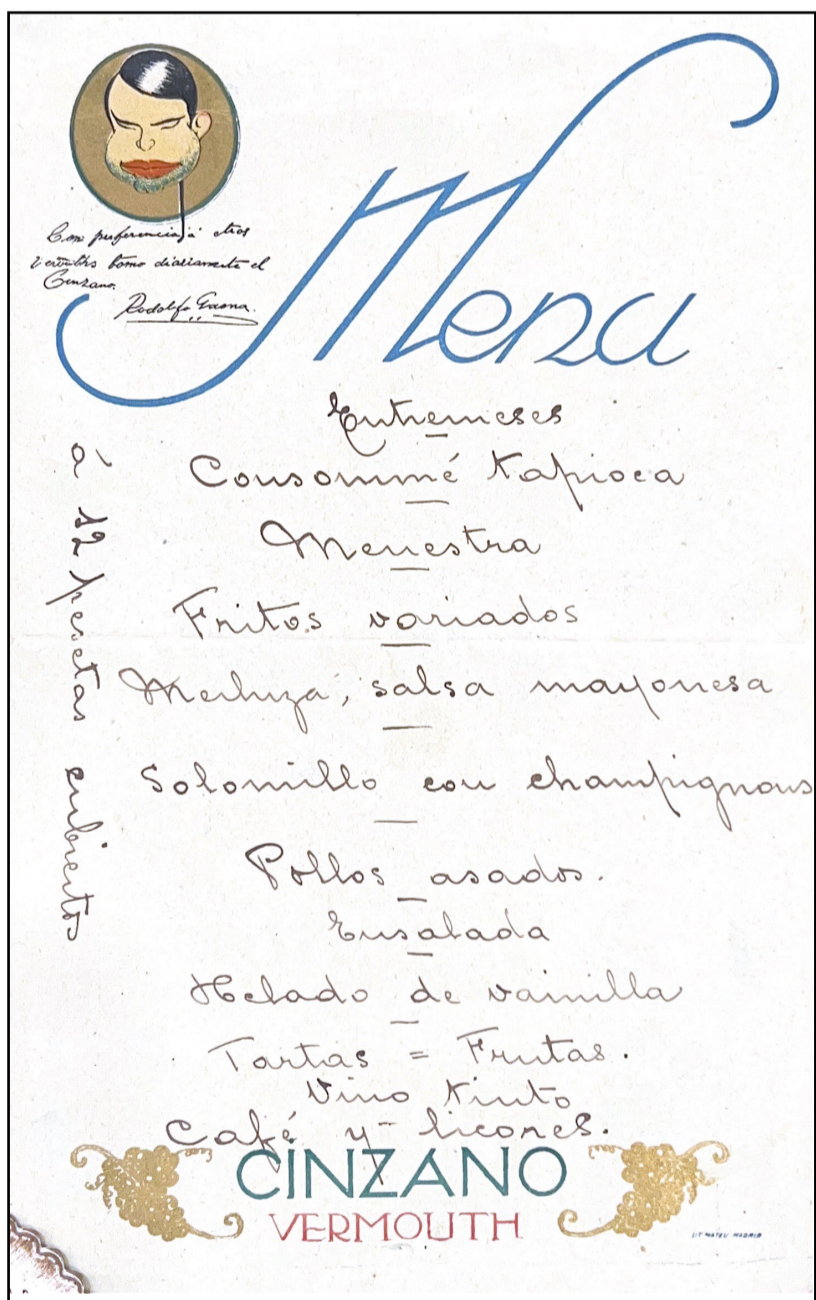 Menu
Con preferencia á otros
vermuths tomo diariamente el
Cinzano.
Rodolfo Gaona.
Entremeses
Consommé Tapioca
Menestra
Fritos variados
Merluza, salsa mayonesa
Solomillo con champignons
Pollos asados.
Ensalada
Helado de vainilla
Tartas = Frutas.
Vino Tinto
Café y licores.
á 12 pesetas cubierto
CINZANO
VERMOUTH
LIT. MATEU MADRID